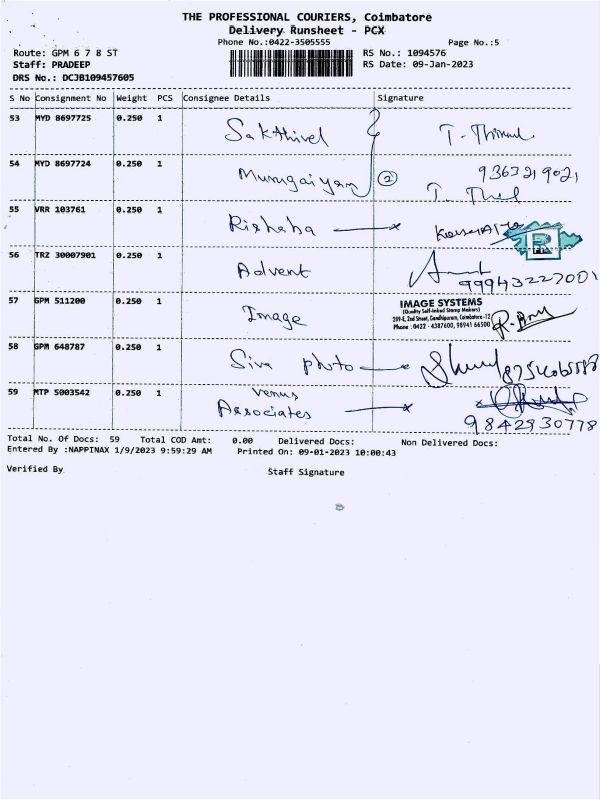 THE PROFESSIONAL COURIERS, Coimbatore
Delivery Runsheet - PCX
Phone No.:0422-3505555 Page No.:5
Route: GPM 6 7 8 ST RS No.: 1094576
Staff: PRADEEP RS Date: 09-Jan-2023
DRS No.: DC3B109457605
S No Consignment No Weight PCS Consignee Details Signature
53 MYD 8697725 0.250 1 Sakthivel
54 MYD 8697724 0.250 1 Murugaiyan 2 9363219021
55 VRR 103761 0.250 1 Rishaba
56 TRZ 30007901 0.250 1 Advent 99943227001
57 GPM 511200 0.250 1 Image
IMAGE SYSTEMS
(Quality Self-Inked Stamp Makers)
289-E, 2nd Street, Gandhipuram, Coimbatore-12
Phone : 0422 - 4387600, 98941 66500
58 GPM 648787 0.250 1 Siva photo
59 MTP 5003542 0.250 1 Venus
Associates 9842930778
Total No. Of Docs: 59 Total COD Amt: 0.00 Delivered Docs: Non Delivered Docs:
Entered By :NAPPINAX 1/9/2023 9:59:29 AM Printed On: 09-01-2023 10:00:43
Verified By Staff Signature